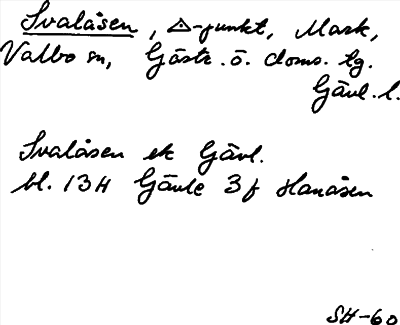 Svalåsen, △-punkt, Mark,
Valbo sn, Gästr. ö. doms. tg.
Gävl. l.
Svalåsen ek Gävl.
bl. 13H Gävle 3f Hanåsen
SH-60